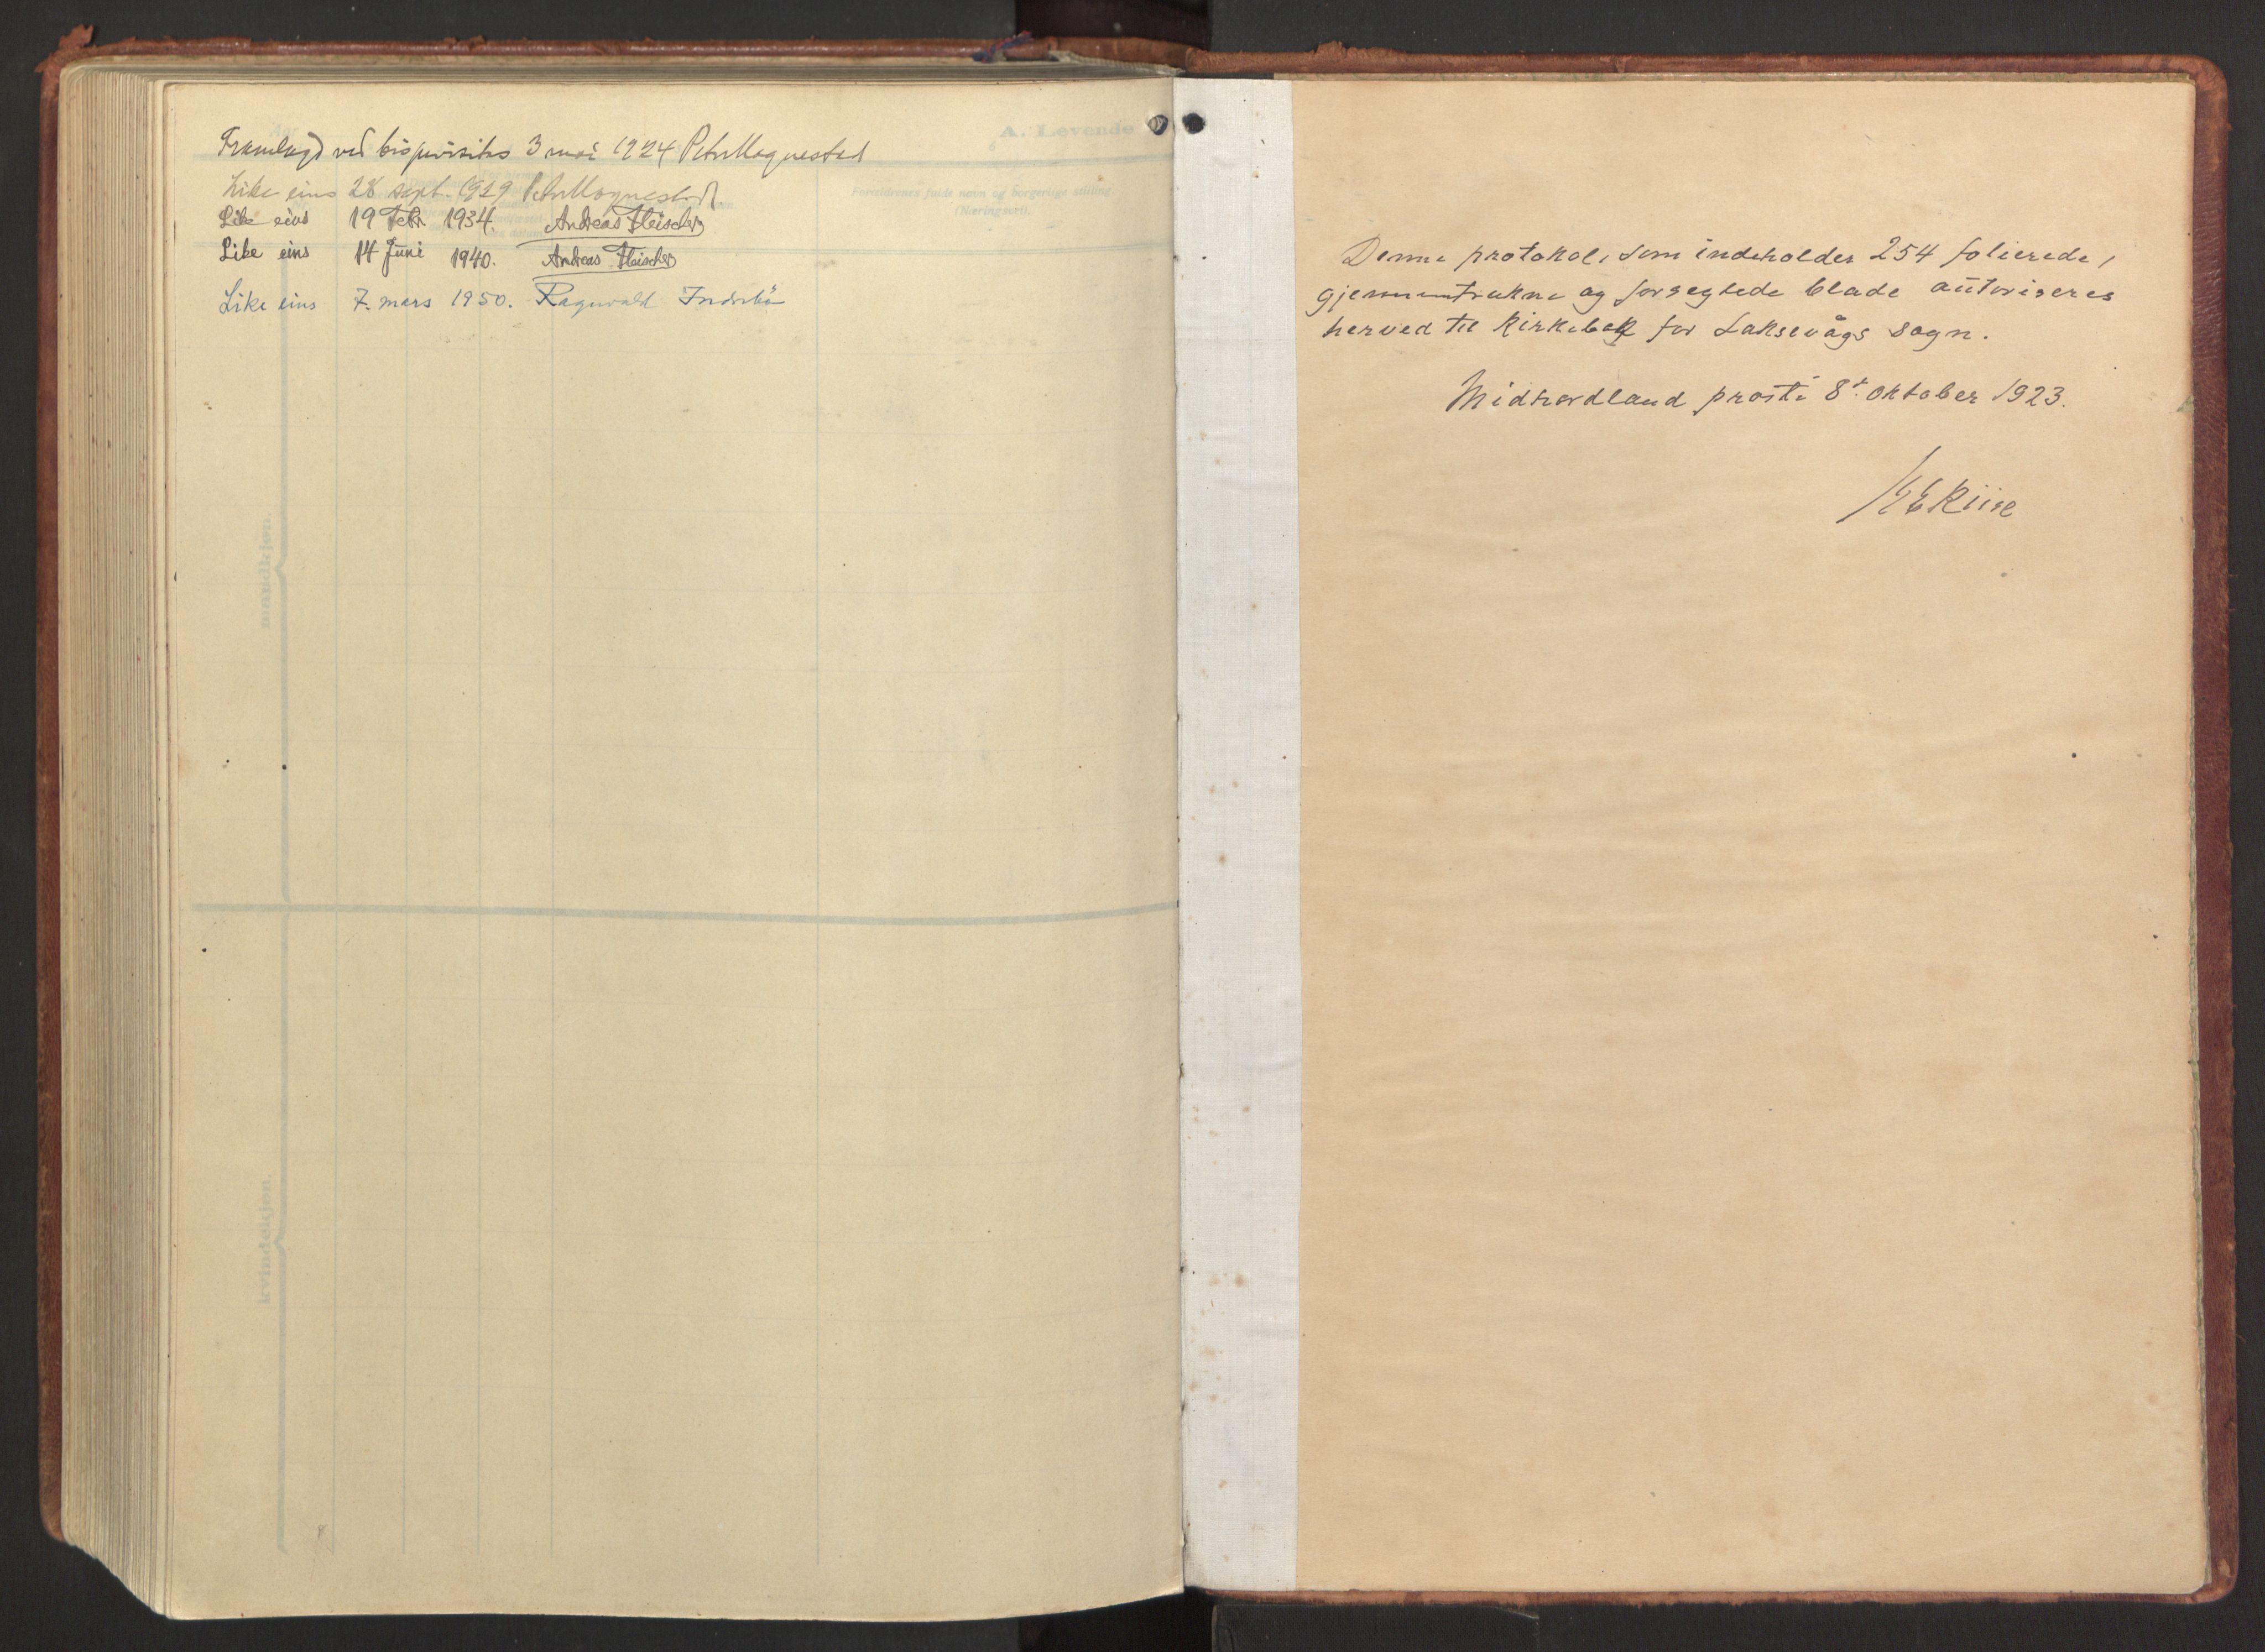 Framlagd ved bispevisitas 3 mai 1924 Peter Hognestad
Like eins 28 sept. 1929 Peter Hognestad.
Like eins 19 Febr. 1934. Andreas Fleischer
Like eins 14 Juni 1940. Andreas Fleischer
Like eins 7. mars 1950. Ragnvald Indrebö
A. Levende
Forældrenes fulde navn og borgerlige stilling.
(Næringsvei).
mandkjøn.
kvindekjøn.
Denne protokol, som indeholder 254 folierede,
gjennemtrukne og forseglede blade autoriseres
herved til Kirkebok for Laksevågs sogn.
Midhordland prosti 8de oktober 1923.
Riise